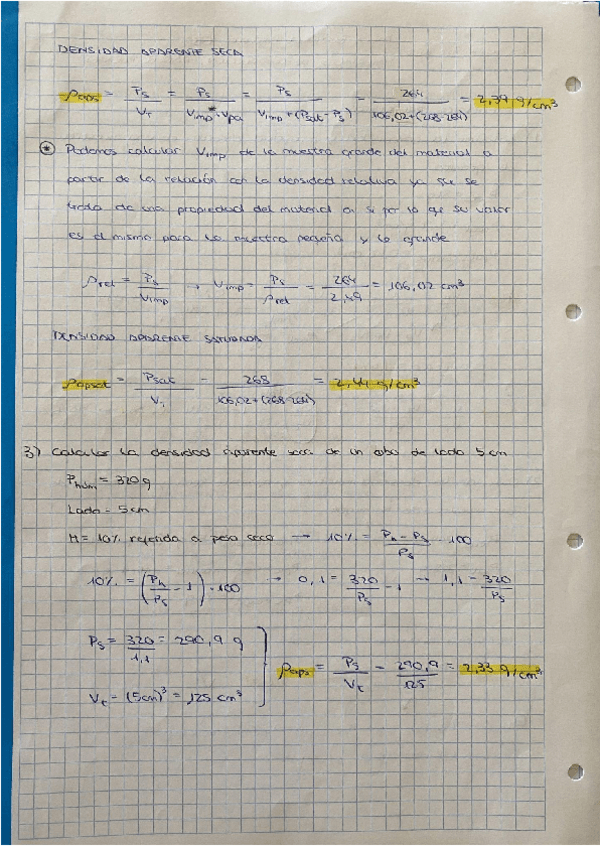 DENSIDAD APARENTE SECA
ρaps = Ps / Vt = Ps / (Vimp* + Vpa) = Ps / (Vimp + (Psat - Ps)) = 264 / (106,02 + (268-264)) = 2,39 g/cm³
* Podemos calcular Vimp de la muestra grande del material a
partir de la relación con la densidad relativa ya que se
trata de una propiedad del material a si por lo que su valor
es el mismo para la muestra pequeña y la grande
ρrel = Ps / Vimp → Vimp = Ps / ρrel = 264 / 2,49 = 106,02 cm³
DENSIDAD APARENTE SATURADA
ρapsat = Psat / Vt = 268 / (106,02 + (268-264)) = 2,44 g/cm³
3) Calcular la densidad aparente seca de un cubo de lado 5 cm
Phum = 320 g
Lado = 5 cm
H = 10% referida a peso seco → 10% = (Ph - Ps) / Ps · 100
10% = (Ph / Ps - 1) · 100 → 0,1 = 320 / Ps - 1 → 1,1 = 320 / Ps
Ps = 320 / 1,1 = 290,9 g
Vt = (5cm)³ = 125 cm³
ρaps = Ps / Vt = 290,9 / 125 = 2,33 g/cm³